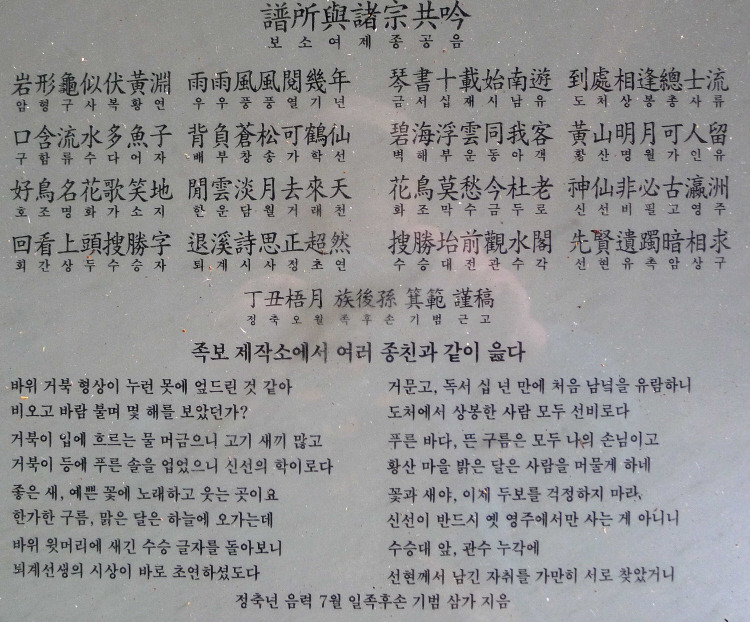 譜所與諸宗共吟
보소여제종공음
岩形龜似伏黃淵 雨雨風風閱幾年
암형구사복황연 우우풍풍열기년
口含流水多魚子 背負蒼松可鶴仙
구함류수다어자 배부창송가학선
好鳥名花歌笑地 閒雲淡月去來天
호조명화가소지 한운담월거래천
回看上頭搜勝字 退溪詩思正超然
회간상두수승자 퇴계시사정초연
琴書十載始南遊 到處相逢總士流
금서십재시남유 도처상봉총사류
碧海浮雲同我客 黃山明月可人留
벽해부운동아객 황산명월가인유
花鳥莫愁今杜老 神仙非必古瀛洲
화조막수금두로 신선비필고영주
搜勝坮前觀水閣 先賢遺躅暗相求
수승대전관수각 선현유촉암상구
丁丑梧月 族後孫 箕範 謹稿
정축오월족후손기범근고
족보 제작소에서 여러 종친과 같이 읊다
바위 거북 형상이 누런 못에 엎드린 것 같아
비오고 바람 불며 몇 해를 보았던가?
거북이 입에 흐르는 물 머금으니 고기 새끼 많고
거북이 등에 푸른 솔을 업었으니 신선의 학이로다
좋은 새, 예쁜 꽃에 노래하고 웃는 곳이요
한가한 구름, 맑은 달은 하늘에 오가는데
바위 윗머리에 새긴 수승 글자를 돌아보니
퇴계선생의 시상이 바로 초연하셨도다
거문고, 독서 십 년 만에 처음 남녘을 유람하니
도처에서 상봉한 사람 모두 선비로다
푸른 바다, 뜬 구름은 모두 나의 손님이고
황산 마을 밝은 달은 사람을 머물게 하네
꽃과 새야, 이제 두보를 걱정하지 마라,
신선이 반드시 옛 영주에서만 사는 게 아니니
수승대 앞, 관수 누각에
선현께서 남긴 자취를 가만히 서로 찾았거니
정축년 음력 7월 일족후손 기범 삼가 지음